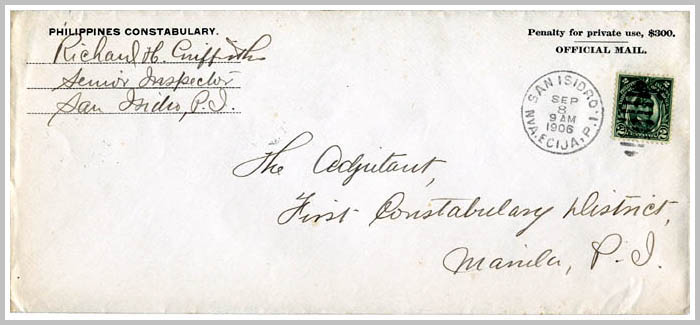 PHILIPPINES CONSTABULARY.
Richard H. Griffith
Senior Inspector
San Isidro, P.I.
Penalty for private use, $300.
OFFICIAL MAIL.
SAN ISIDRO
SEP
8
9 AM
1906
NVA. ECIJA, P.I.
2 2
The Adjutant,
First Constabulary District,
Manila, P.I.